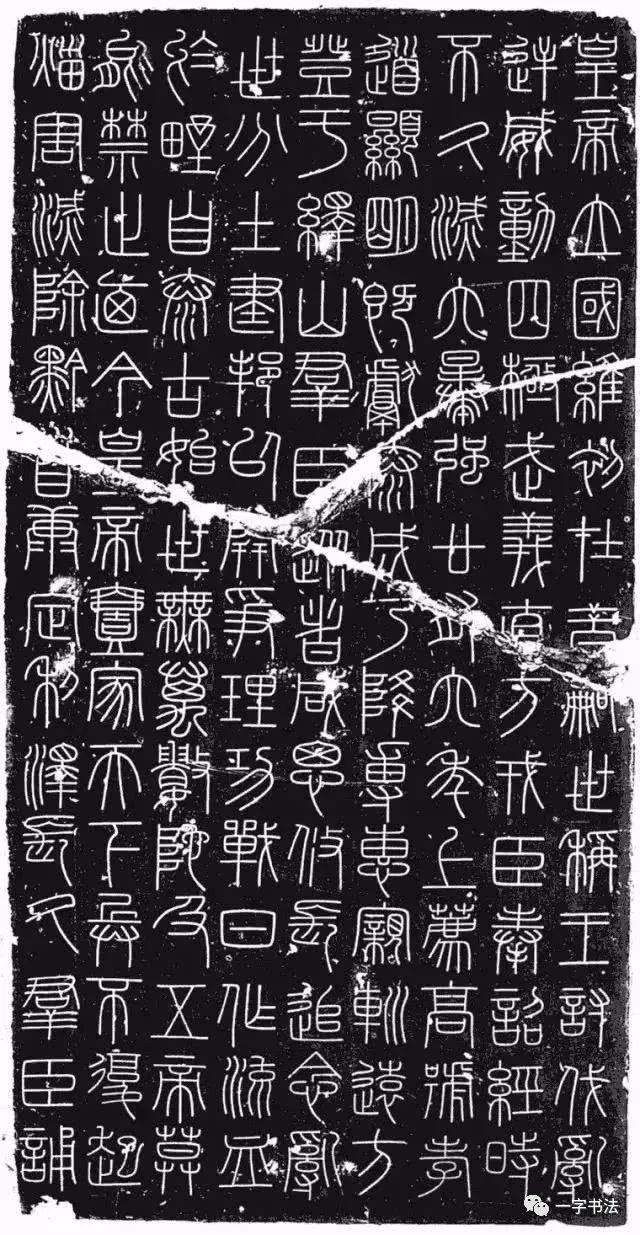 皇帝立國維初在昔嗣世稱王討伐亂
逆威動四極武義直方戎臣奉詔經時
不久滅六暴強廿有六年上薦高號孝
道顯明既獻泰成乃降專惠寴巡遠方
登于繹山羣臣從者咸思攸長追念亂
世分土建邦以開爭理功戰日作流血
於野自泰古始世無萬數陀及五帝莫
能禁止廼今皇帝壹家天下兵不復起
災害滅除黔首康定利澤長久羣臣誦
一字书法